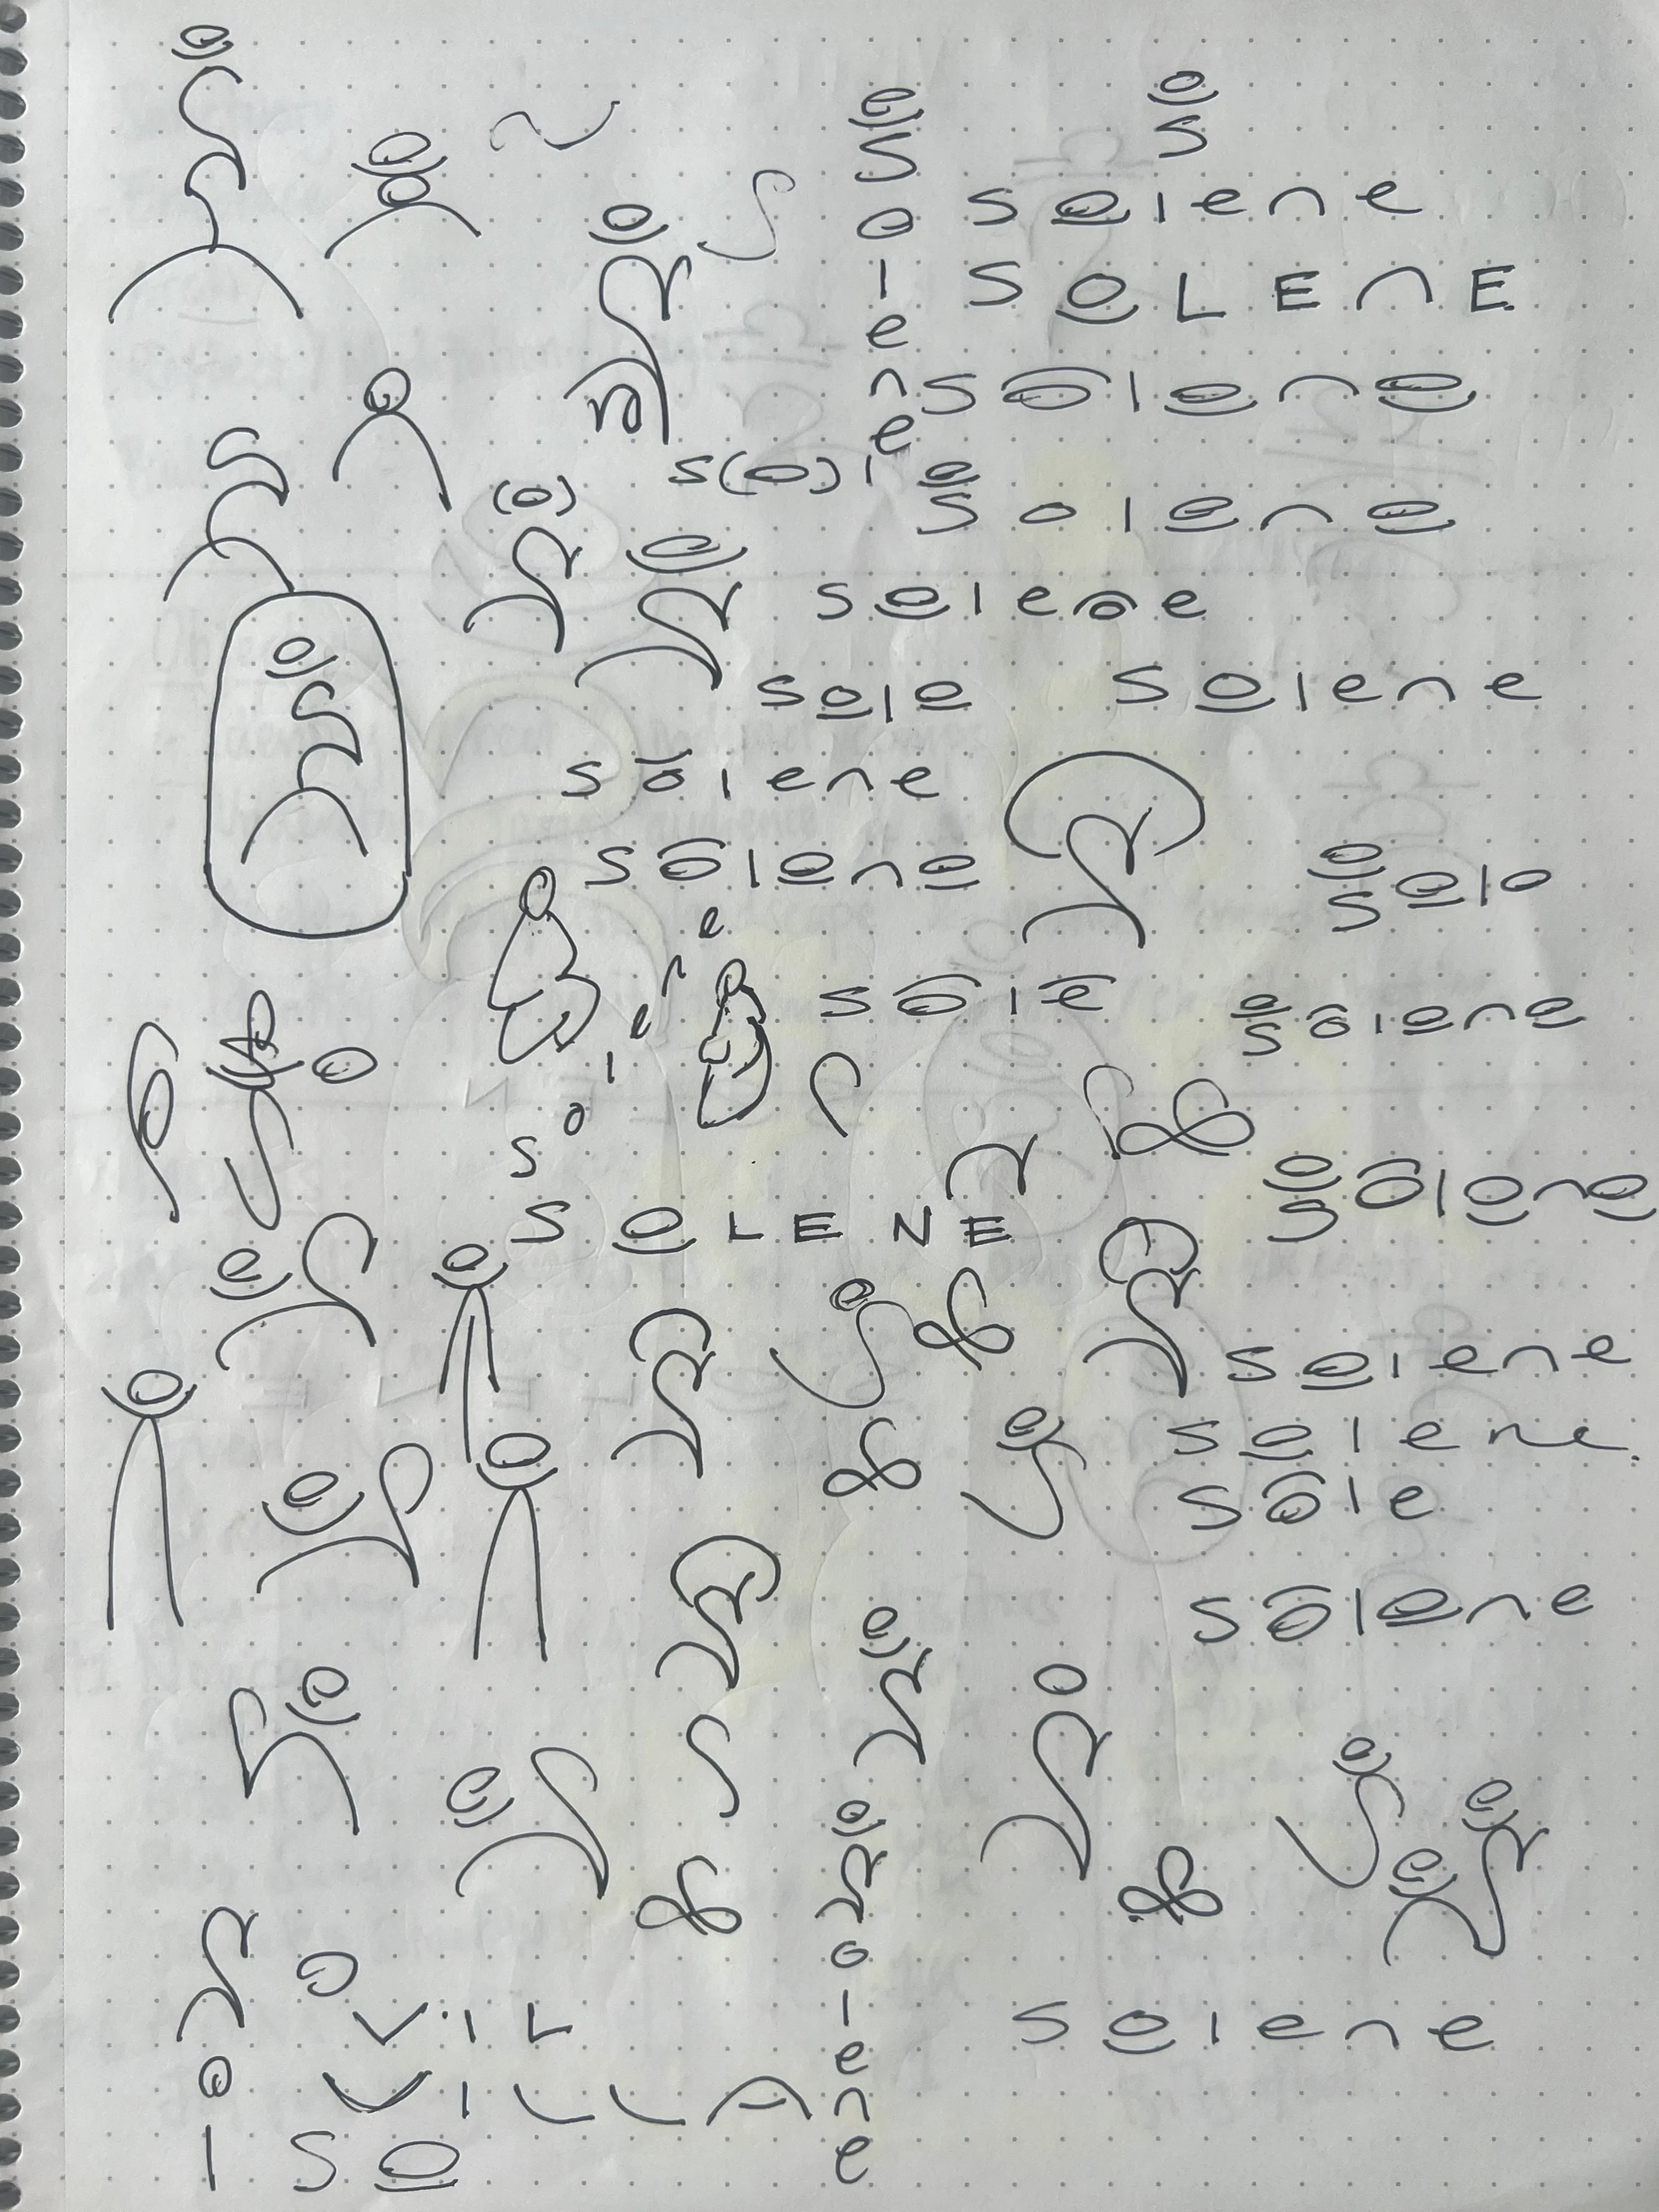 s
s
solene
SOLEnE
solene
solene
s(o)le
(o)
solene
solene
sole solene
solene
solene
solo
sole
solene
solene
SOLENE
solene
solene
solene
sole
solene
solene
VIL
solene
VILLA
sol
so